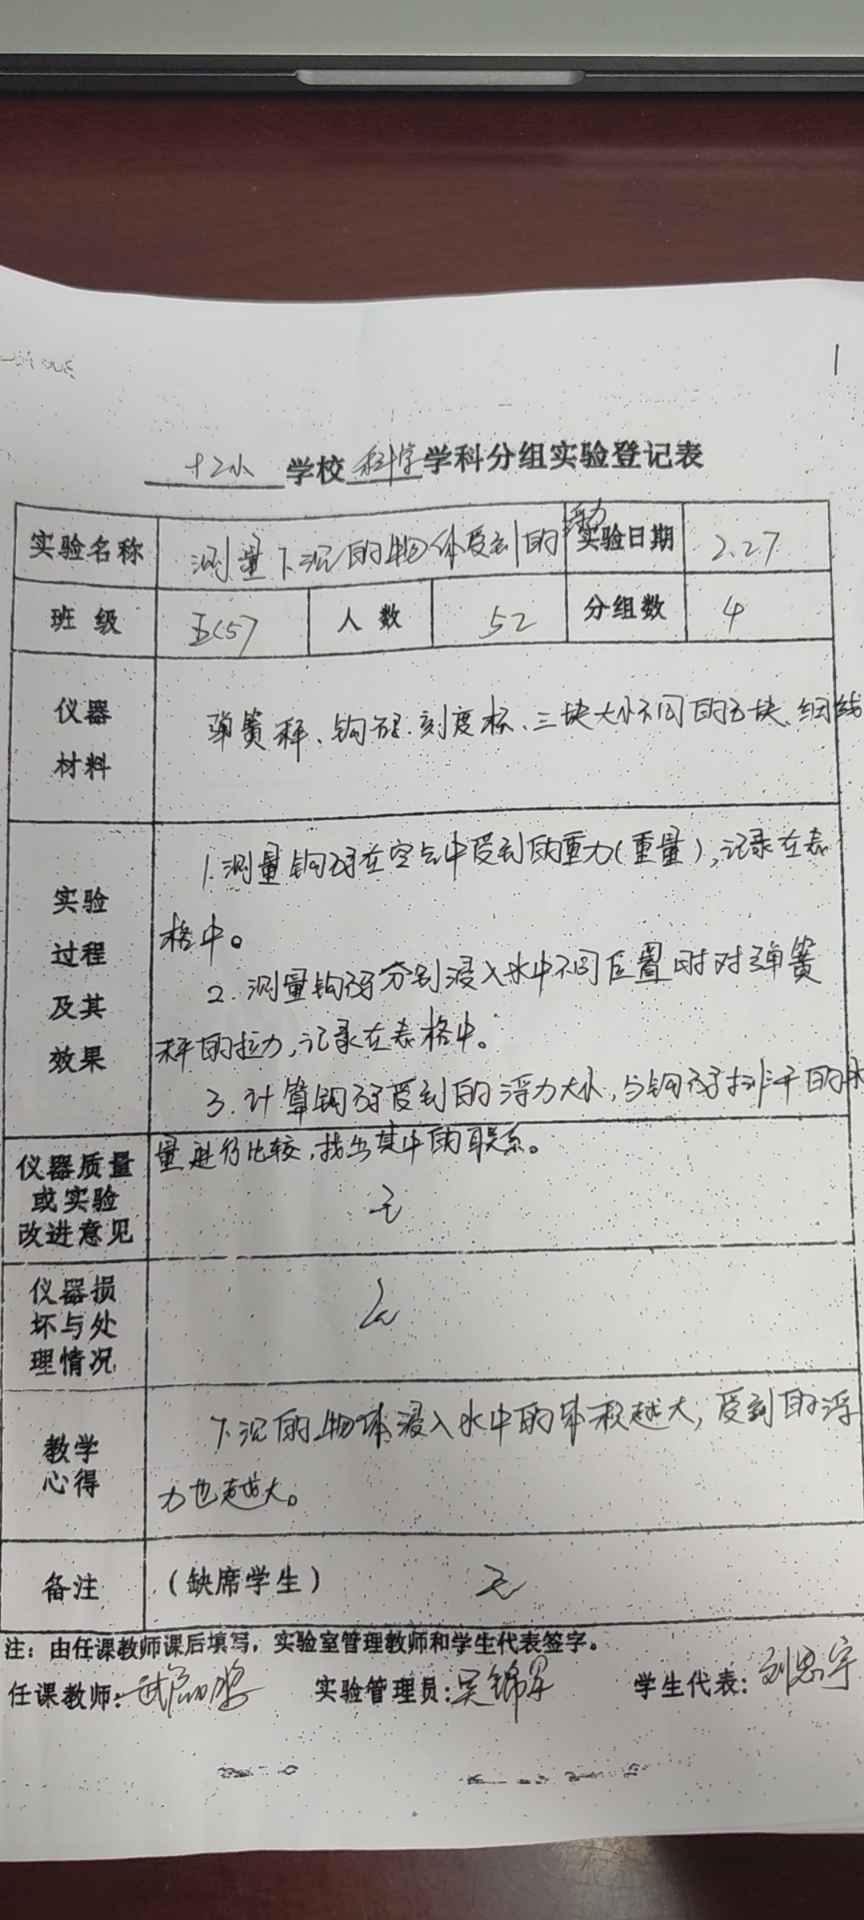 十二小 学校 科学 学科分组实验登记表
实验名称 测量下沉的物体受到的浮力 实验日期 2.27
班 级 五<5> 人 数 52 分组数 4
仪器
材料
弹簧秤、钩码、刻度杯、三块大小不同的石块、细线
实验
过程
及其
效果
1.测量钩码在空气中受到的重力(重量),记录在表
格中。
2.测量钩码分别浸入水中不同位置时对弹簧
秤的拉力,记录在表格中。
3.计算钩码受到的浮力大小,与钩码排开的水
量进行比较,找出其中的联系。
仪器质量
或实验
改进意见
无
仪器损
坏与处
理情况
无
教学
心得
下沉的物体浸入水中的体积越大,受到的浮
力也越大。
备注 (缺席学生) 无
注:由任课教师课后填写,实验室管理教师和学生代表签字。
任课教师: 实验管理员:吴锦军 学生代表:刘思宇